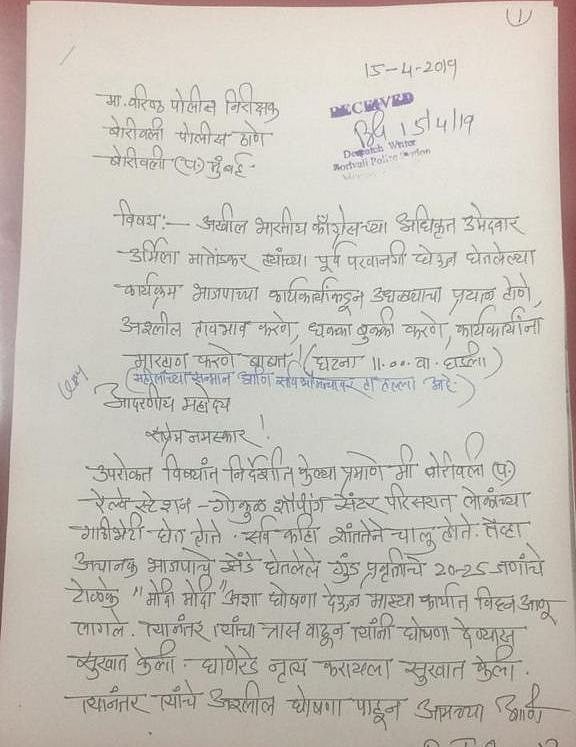 1
15-4-2019
मा. वरिष्ठ पोलीस निरीक्षक
बोरीवली पोलीस ठाणे
बोरीवली (प.) मुंबई.
RECEIVED
15/4/19
Despatch Writer
Borivali Police Station
विषय :- अखील भारतीय काँग्रेसच्या अधिकृत उमेदवार
उर्मिला मातोंडकर ह्यांच्या पूर्व परवानगी घेऊन घेतलेल्या
कार्यक्रम भाजपाच्या कार्यकर्त्यांकडून उधळण्याचा प्रयत्न होणे,
अश्लील हावभाव करणे, धक्का बुक्की करणे, कार्यकर्त्यांना
मारहाण करणे बाबत! (घटना 11.00 वा. घडली)
(महीलांच्या सन्मान आणि हा हल्ला आहे.)
आदरणीय महोदय
सप्रेम नमस्कार!
उपरोक्त विषयांत निर्देशीत केल्या प्रमाणे मी बोरीवली (प.)
रेल्वे स्टेशन - गोकुळ शॉपींग सेंटर परिसरात लोकांच्या
गाठीभेटी घेत होते. सर्व काही शांततेने चालू होते. तेव्हा
अचानक भाजपाचे झेंडे घेतलेले गुंड प्रवृत्तीचे 20-25 जणांचे
टोळके "मोदी मोदी" अशा घोषणा देऊन माझ्या कार्यात विघ्न आणू
लागले. त्यानंतर त्यांचा त्रास वाढून त्यांनी घोषणा देण्यास
सुरवात केली. घाणेरडे नृत्य करायला सुरवात केली.
त्यानंतर त्यांचे अश्लील घोषणा पाहून आमच्या आणि